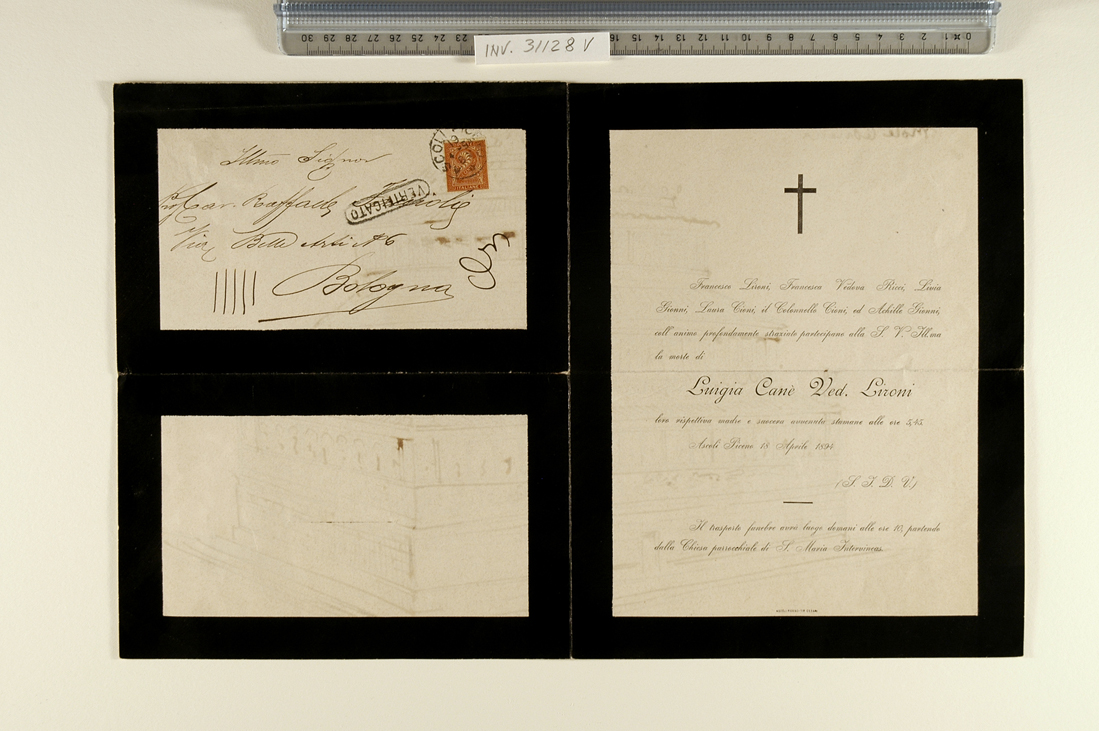 INV. 31128 V
30 29 28 27 26 25 24 23 22 16 15 14 13 12 11 10 9 8 7 6 5 4 3 2 1 0
Illmo Signor
Cav. Raffaele
Via Belle Arti N 6
Bologna
VERIFICATO
Francesco Lironi, Francesca Vedova Ricci, Livia
Gionni, Laura Cioni, il Colonnello Cioni, ed Achille Gionni,
coll'animo profondamente straziato partecipano alla S. V. Ill.ma
la morte di
Luigia Canè Ved. Lironi
loro rispettiva madre e suocera avvenuta stamane alle ore 5,45.
Ascoli Piceno 18 Aprile 1894
(S. I. D. V.)
Il trasporto funebre avrà luogo domani alle ore 10, partendo
dalla Chiesa parrocchiale di S. Maria Intervineas.